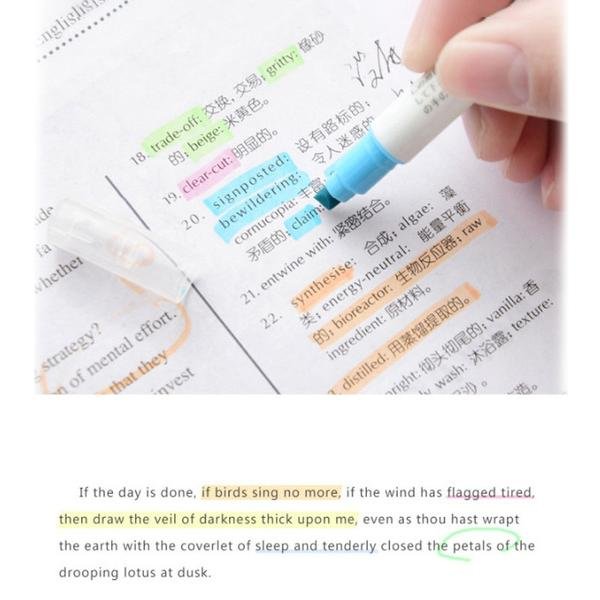 english
18. trade-off: 交换, 交易; gritty: 像砂
的; beige: 米黄色。
19. clear-cut: 明显的。
20. signposted: 设有路标的;
bewildering: 令人迷惑的
cornucopia: 丰富
矛盾的; claim:
21. entwine with: 紧密结合。
22. synthesise: 合成; algae: 藻
类; energy-neutral: 能量平衡
的; bioreactor: 生物反应器; raw
ingredient: 原材料。
distilled: 用蒸馏提取的。
彻头彻尾的; vanilla: 香
wash: 沐浴露; texture:
whether
strategy?
of mental effort.
that they
invest
If the day is done, if birds sing no more, if the wind has flagged tired,
then draw the veil of darkness thick upon me, even as thou hast wrapt
the earth with the coverlet of sleep and tenderly closed the petals of the
drooping lotus at dusk.